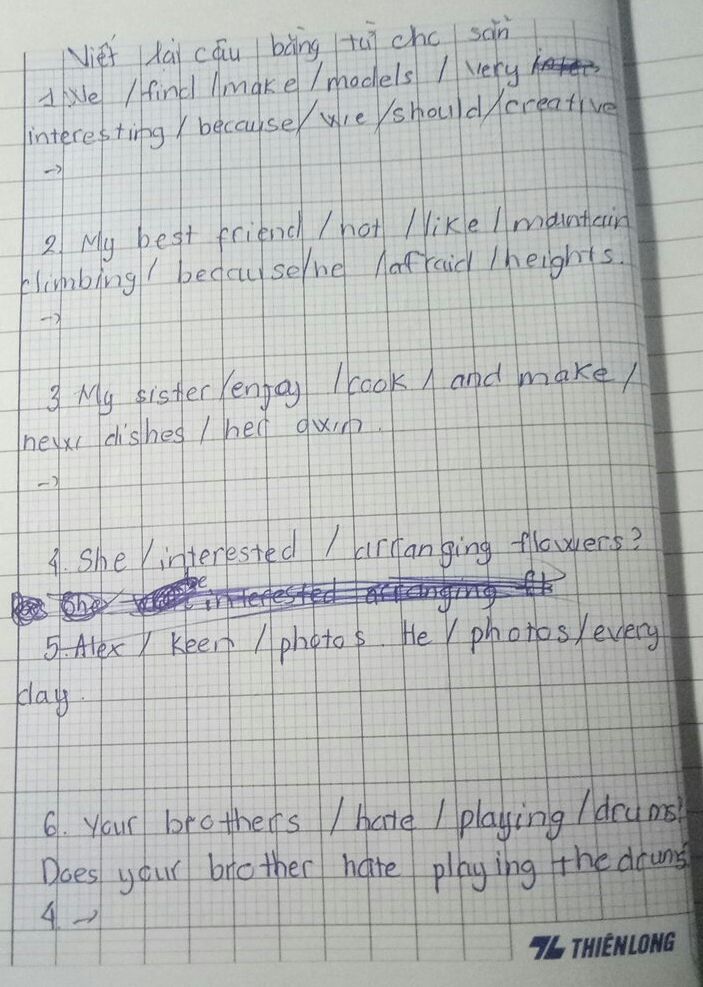 Viết lại câu bằng từ cho sẵn
1. We / find / make / models / very
interesting / because / we / should / creative
→
2. My best friend / not / like / mountain
climbing / because / he / afraid / heights.
→
3 My sister / enjoy / cook / and make /
new dishes / her own.
→
4. She / interested / arranging flowers?
She be interested arranging fl
5. Alex / keen / photos. He / photos / every
day.
6. Your brothers / hate / playing / drums?
Does your brother hate playing the drums
4. →
TL THIÊN LONG